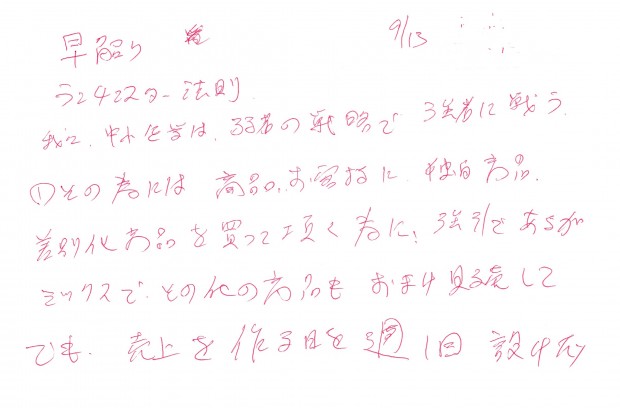 早解り 9/13
ランチェスター法則
我々、中小企業は、弱者の戦略で 強者に戦う。
①その為には 商品、お客様に、独自商品、
差別化商品を買って頂く為に、強引であるが
ミックスで、その他の商品も おまけ
でも、売上を作る日を週1回 設け